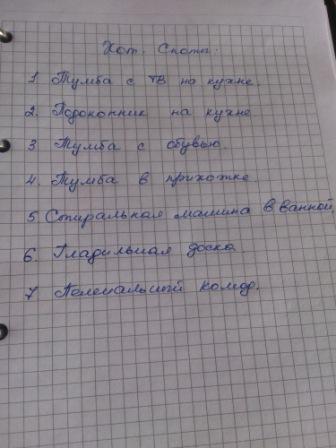 Хот. Споты.
1 Тумба с ТВ на кухне.
2. Подоконник на кухне
3 Тумба с обувью.
4. Тумба в прихожке
5 Стиральная машина в ванной
6. Гладильная доска
7 Пеленальный комод.